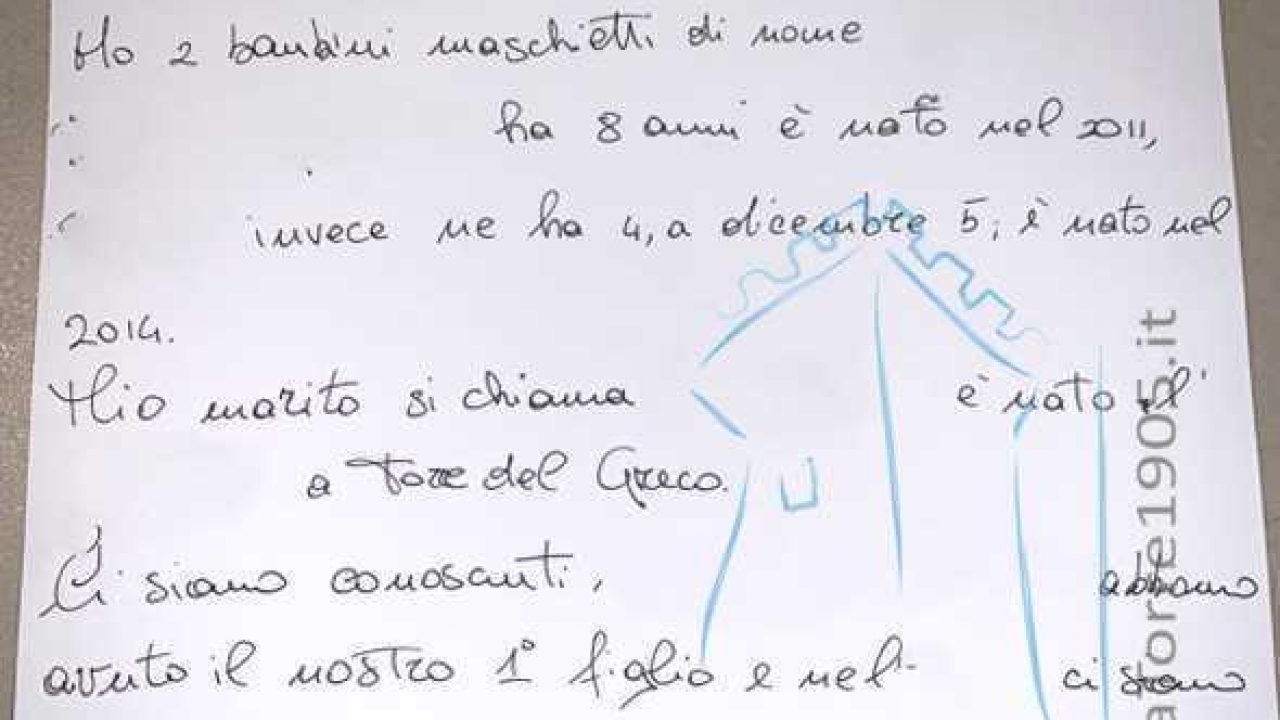 Ho 2 bambini maschietti di nome
ha 8 anni è nato nel 2011,
invece ne ha 4, a dicembre 5; è nato nel
2014.
Mio marito si chiama è nato il
a Torre del Greco.
Ci siamo conosciuti, abbiamo
avuto il nostro 1° figlio e nel ci siamo
latorre1905.it